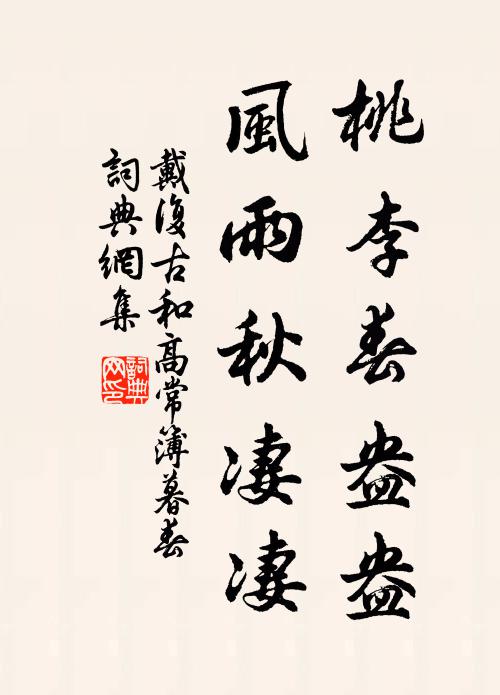 桃李春盎盎
風雨秋凄凄
戴復古和高常簿暮春
詞典網集
詞典網印